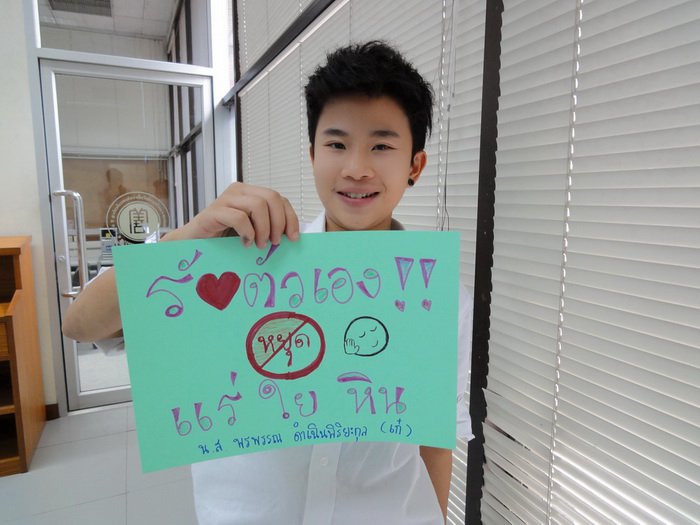 รั❤ตัวเอง!!
หยุด
แร่ ใย หิน
น.ส พรพรรณ ดำเนินพิริยะกุล (เก๋)